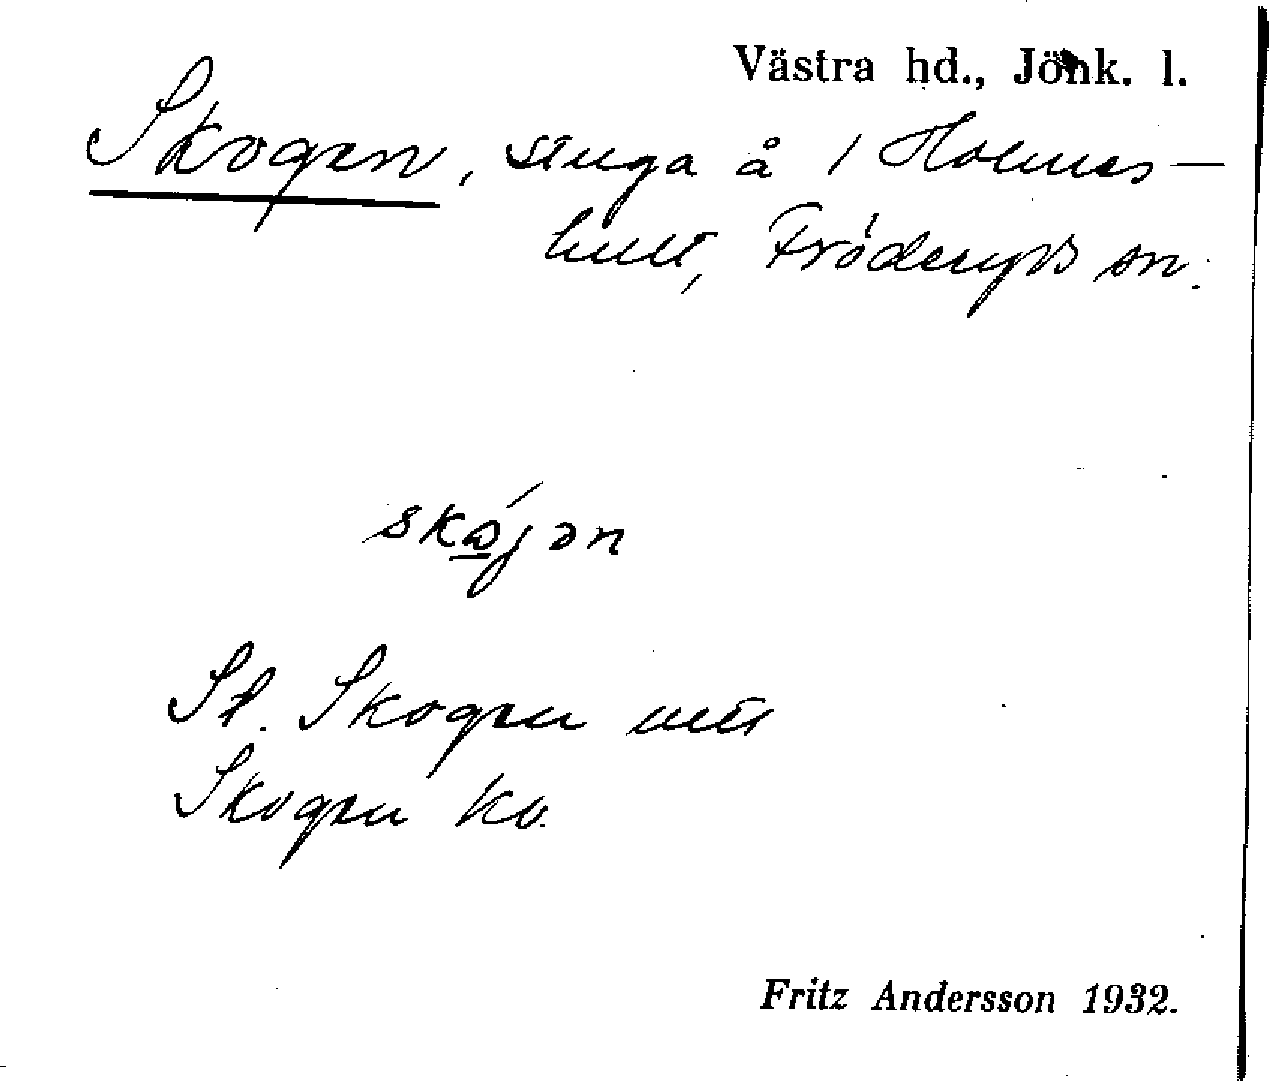 Västra hd., Jönk. l.
Skogen, stuga å 1 Holmes-
hult, Fröderyds sn.
skωjən
St. Skogen mtr
Skogen kv.
Fritz Andersson 1932.